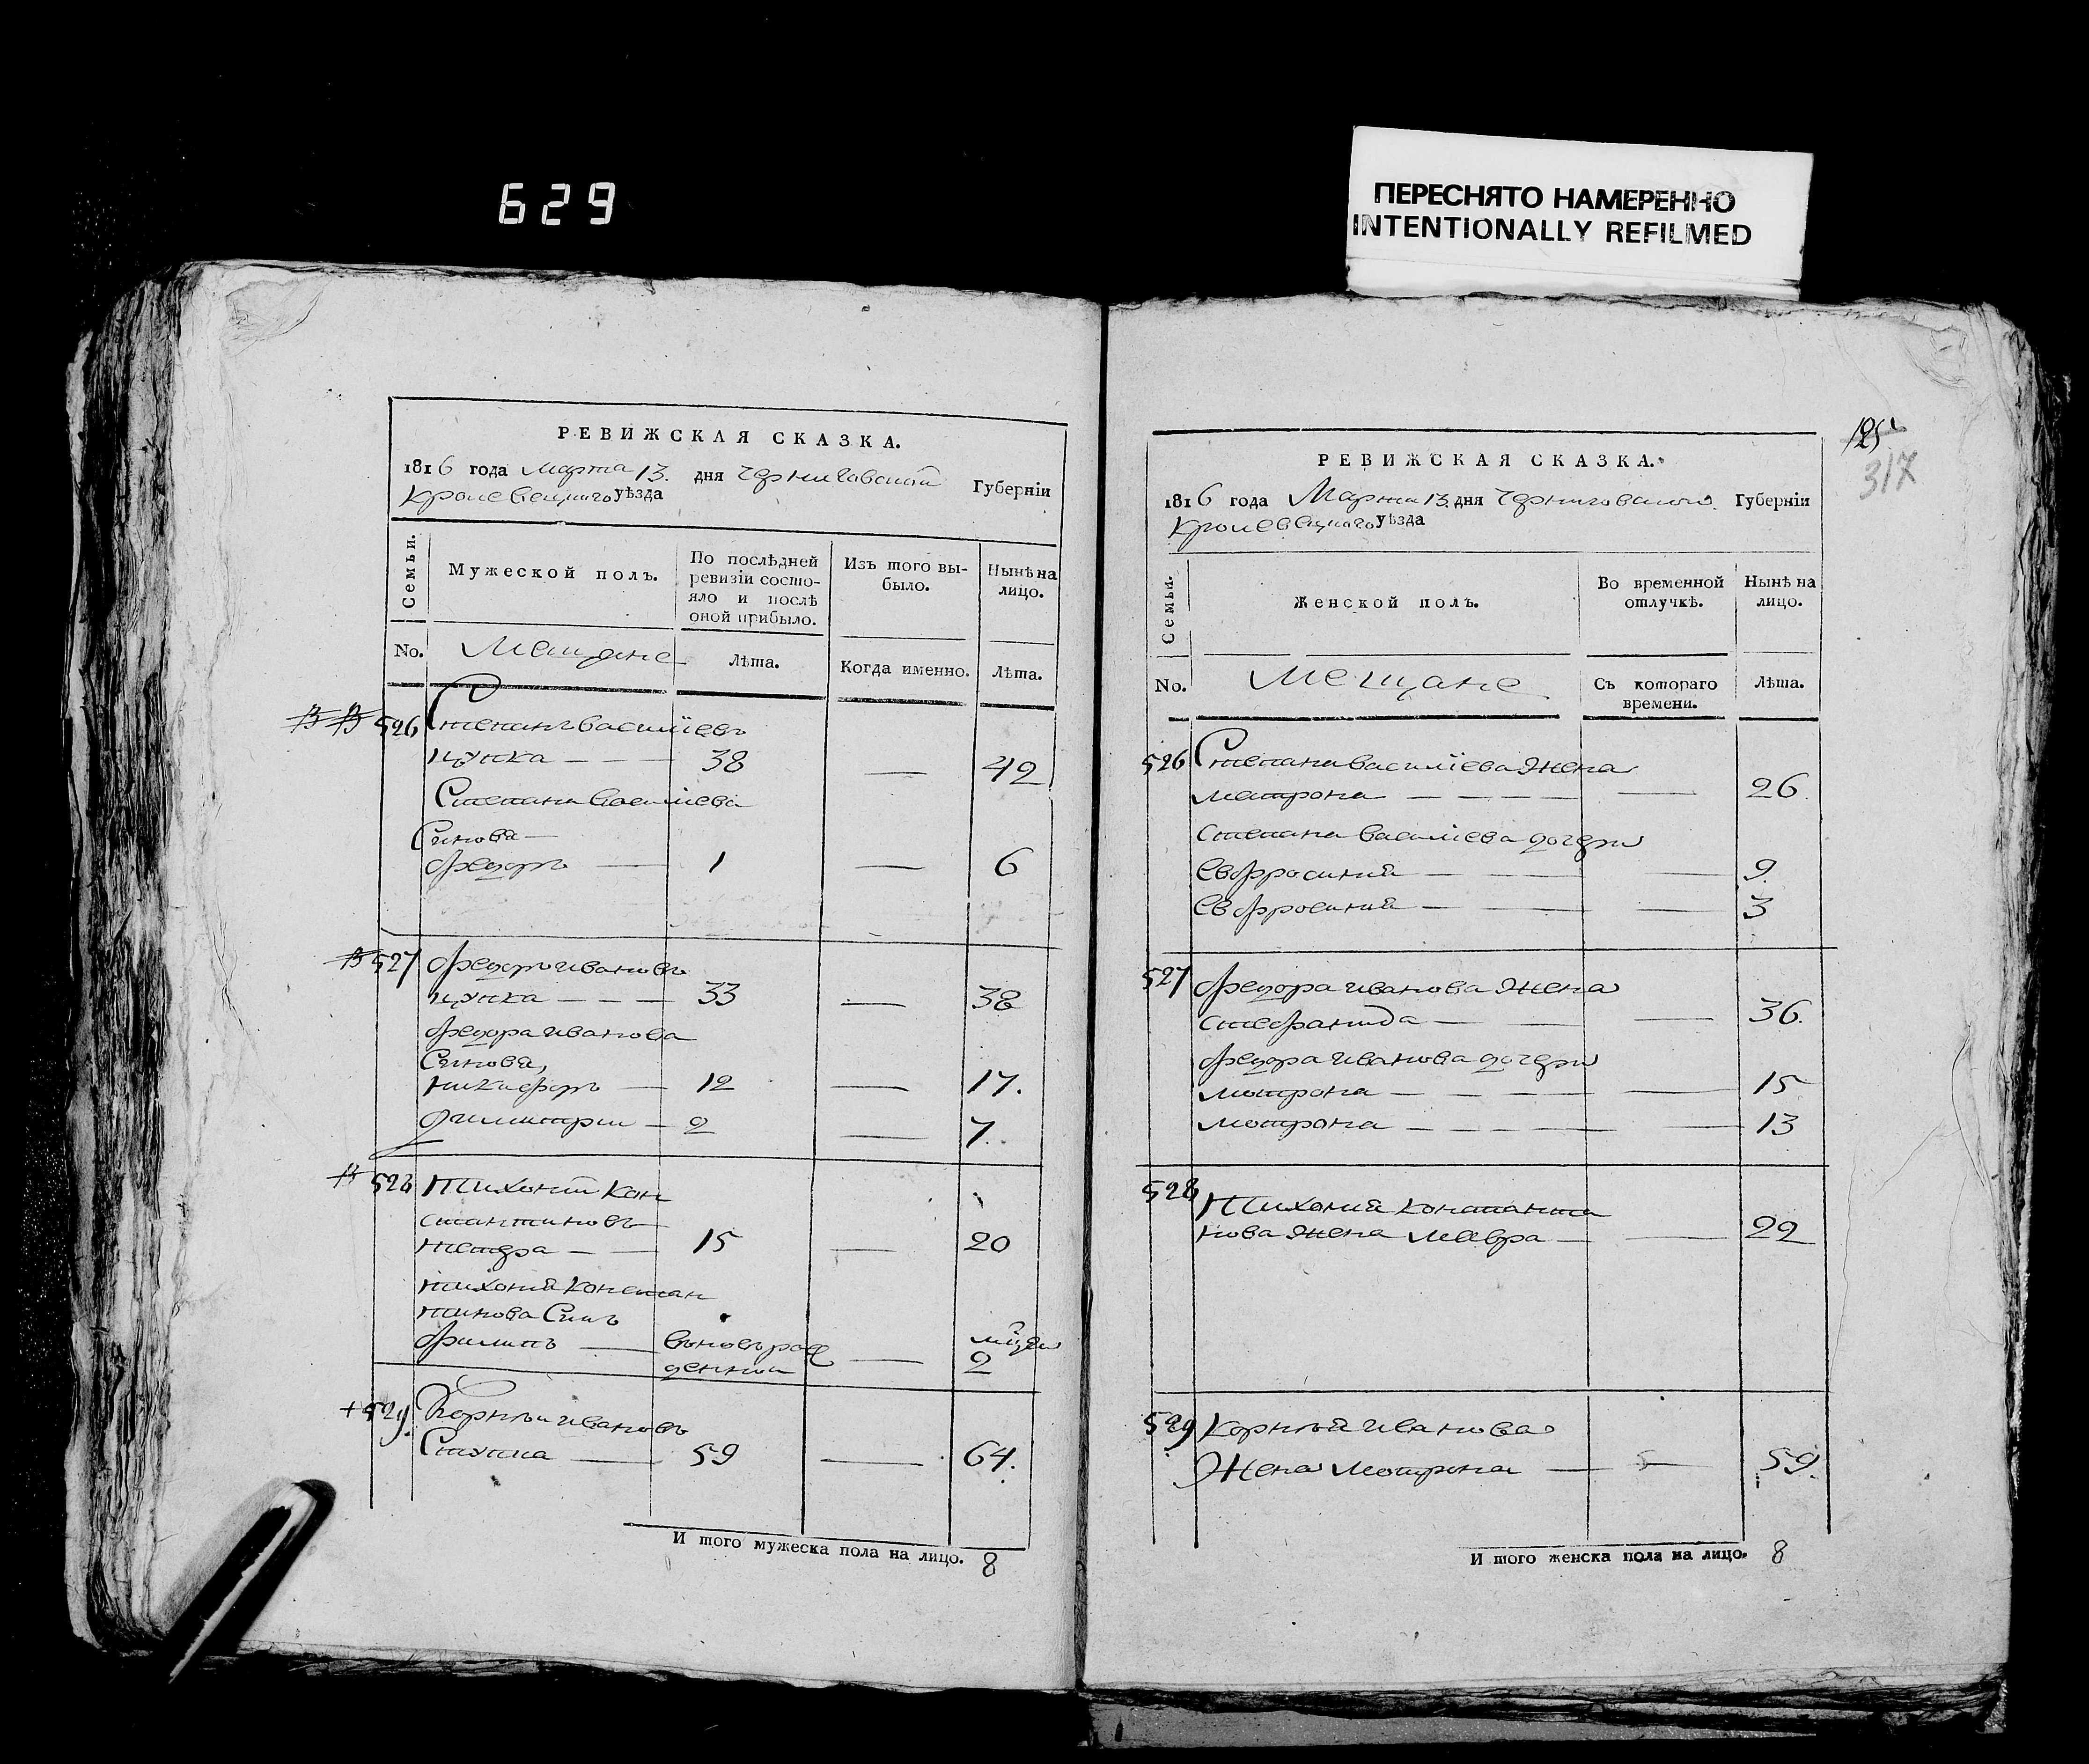 629
ПЕРЕСНЯТО НАМЕРЕННО
INTENTIONALLY REFILMED
РЕВИЖСКАЯ СКАЗКА.
1816 года Марта 13. дня Черниговской Губерніи
Кролевецкаго уѣзда
Семьи.
Мужеской полъ.
По послѣдней ревизіи состо-
яло и послѣ
оной прибыло.
Изъ того вы-
было.
Нынѣ на
лицо.
No.
Мещане
Лѣта.
Когда именно.
Лѣта.
526 Степанъ Василіевъ
цупка 38 — 42
Степана Василіева
Синова
Федоръ — 1 — 6
527 Федоръ Ивановъ
цупка 33 — 38
Федора Иванова
Синова,
Никифоръ — 12 — 17.
Димитрии — 2 — 7.
528 Тихоній Кон
стантиновъ
15 — 20
Тихонія Констан
тинова Синъ
Филипъ — вновърож
денний — 2
529. Корнѣи Ивановъ
59 — 64.
И того мужеска пола на лицо. 8
125
317
РЕВИЖСКАЯ СКАЗКА.
1816 года Марта 13. дня Черниговской Губерніи
Кролевецкаго уѣзда
Семьи.
Женской полъ.
Во временной
отлучкѣ.
Нынѣ на
лицо.
No.
Мещане
Съ котораго
времени.
Лѣта.
526 Степана Василіева Жена
Матрона — 26.
Степана Василіева дочери
Евфросиния — 9
Евфросиния — 3
527 Федора Иванова Жена
Стефанида — 36.
Федора Иванова дочери
Мотрона — 15
Мотрона — 13
528 Тихония Константи
нова Жена Мавра — 22
529 Корнѣя Иванова
Жена Мотрона — 59.
И того женска пола на лицо. 8